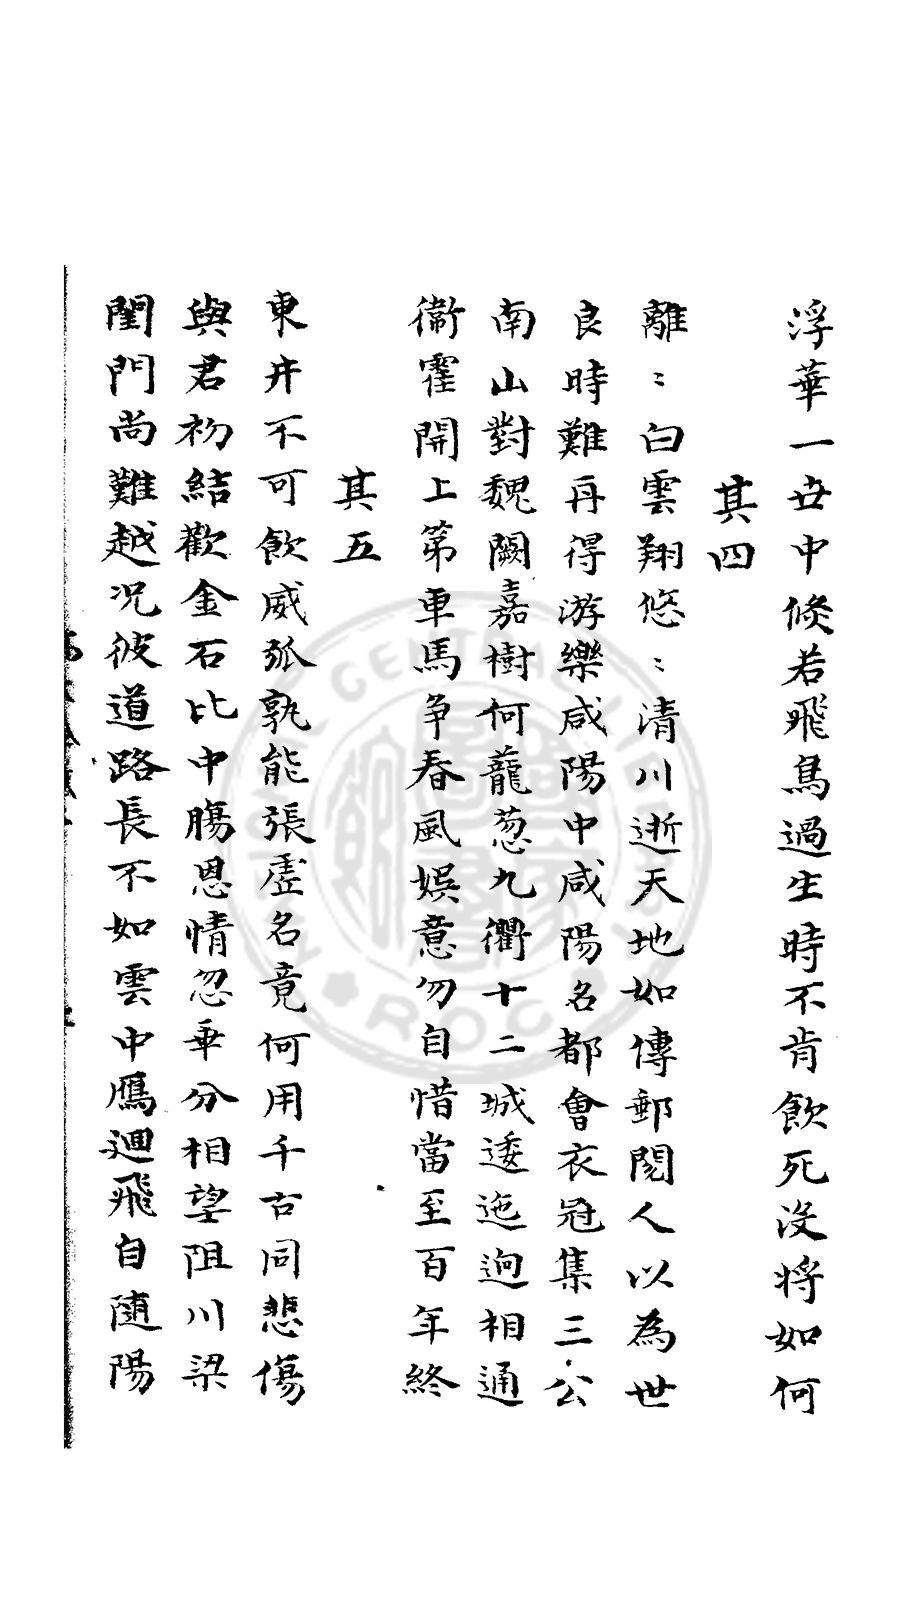 浮華一世中倏若飛鳥過生時不肯飲死沒將如何
其四
離〻白雲翔悠〻清川逝天地如傳郵閱人以為世
良時難再得游樂咸陽中咸陽名都會衣冠集三公
南山對魏闕嘉樹何蘢葱九衢十二城逶迤迥相通
衞霍開上第車馬争春風娛意勿自惜當至百年終
其五
東井不可飲威弧孰能張虛名竟何用千古同悲傷
與君初結歡金石比中腸恩情忽乖分相望阻川梁
閨門尚難越况彼道路長不如雲中鴈迴飛自隨陽